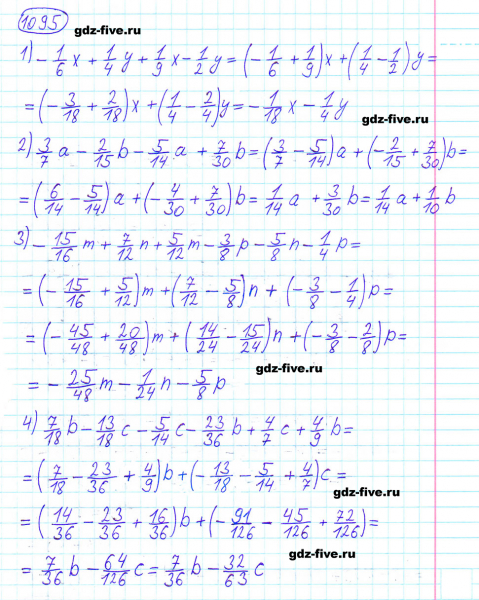 1095
gdz-five.ru
1) -1/6 x + 1/4 y + 1/9 x - 1/2 y = (-1/6 + 1/9)x + (1/4 - 1/2)y =
= (-3/18 + 2/18)x + (1/4 - 2/4)y = -1/18 x - 1/4 y
gdz-five.ru
2) 3/7 a - 2/15 b - 5/14 a + 7/30 b = (3/7 - 5/14)a + (-2/15 + 7/30)b =
= (6/14 - 5/14)a + (-4/30 + 7/30)b = 1/14 a + 3/30 b = 1/14 a + 1/10 b
gdz-five.ru
3) -15/16 m + 7/12 n + 5/12 m - 3/8 p - 5/8 n - 1/4 p =
= (-15/16 + 5/12)m + (7/12 - 5/8)n + (-3/8 - 1/4)p =
= (-45/48 + 20/48)m + (14/24 - 15/24)n + (-3/8 - 2/8)p =
gdz-five.ru
= -25/48 m - 1/24 n - 5/8 p
4) 7/18 b - 13/18 c - 5/14 c - 23/36 b + 4/7 c + 4/9 b =
= (7/18 - 23/36 + 4/9)b + (-13/18 - 5/14 + 4/7)c =
gdz-five.ru
= (14/36 - 23/36 + 16/36)b + (-91/126 - 45/126 + 72/126) =
gdz-five.ru
= 7/36 b - 64/126 c = 7/36 b - 32/63 c